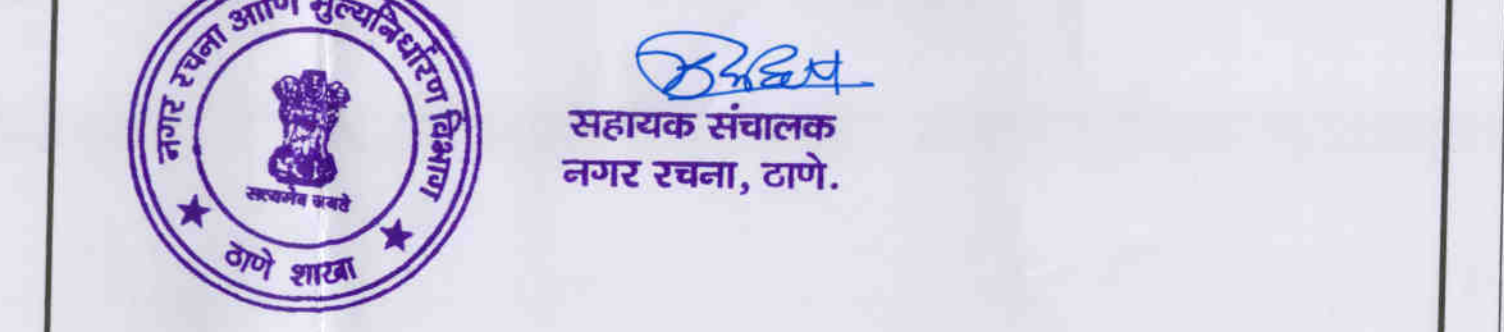 नगर रचना आणि मुल्यनिर्धारण विभाग
सत्यमेव जयते
ठाणे शाखा
सहायक संचालक
नगर रचना, ठाणे.